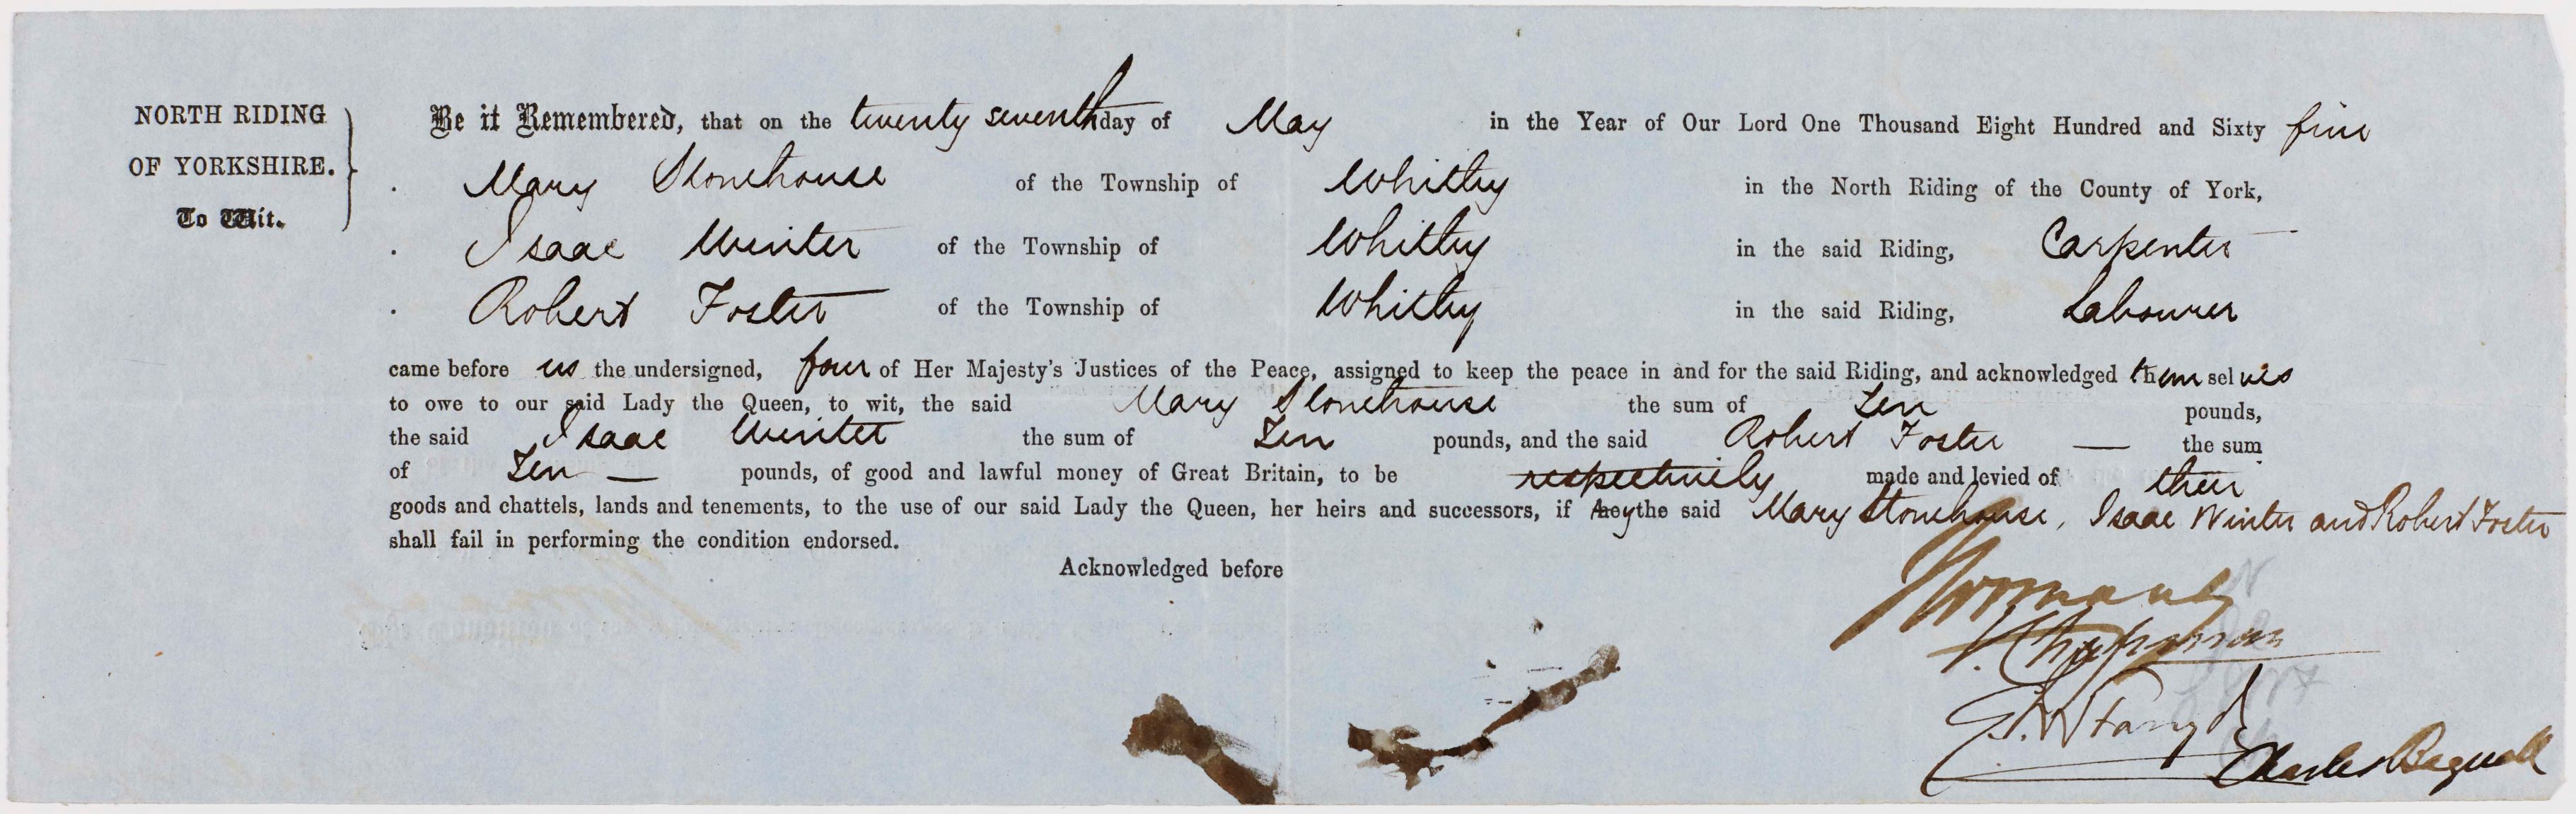 NORTH RIDING
OF YORKSHIRE.
To Wit.
Be it Remembered, that on the twenty seventh day of May in the Year of Our Lord One Thousand Eight Hundred and Sixty five
Mary Stonehouse of the Township of Whitby in the North Riding of the County of York,
Isaac Winter of the Township of Whitby in the said Riding, Carpenter
Robert Foster of the Township of Whitby in the said Riding, Labourer
came before us the undersigned, four of Her Majesty's Justices of the Peace, assigned to keep the peace in and for the said Riding, and acknowledged themselves
to owe to our said Lady the Queen, to wit, the said Mary Stonehouse the sum of Ten pounds,
the said Isaac Winter the sum of Ten pounds, and the said Robert Foster — the sum
of Ten — pounds, of good and lawful money of Great Britain, to be respectively made and levied of their
goods and chattels, lands and tenements, to the use of our said Lady the Queen, her heirs and successors, if they the said Mary Stonehouse, Isaac Winter and Robert Foster
shall fail in performing the condition endorsed.
Acknowledged before
Normanby
Chapman
Charles Bagnall